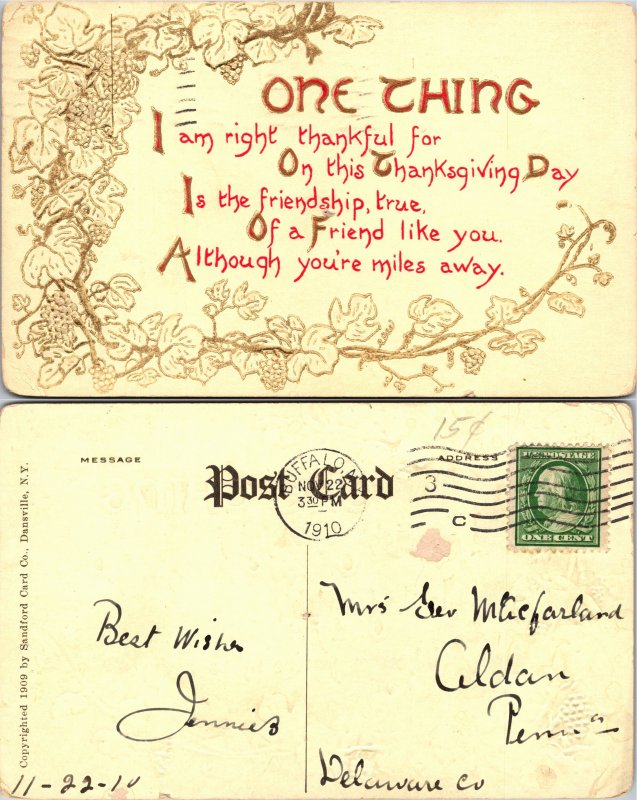 ONE THING
I am right thankful for
On this Thanksgiving Day
Is the friendship, true,
Of a Friend like you.
Although you're miles away.
15¢
MESSAGE
ADDRESS
Post Card
BUFFALO, N.Y.
NOV 22
3 30 PM
1910
3
C
U.S. POSTAGE
ONE CENT
Copyrighted 1909 by Sandford Card Co., Dansville, N.Y.
Best Wishes
Jennie
11-22-10
Mrs Geo Farland
Aldan
Penna
Delaware co